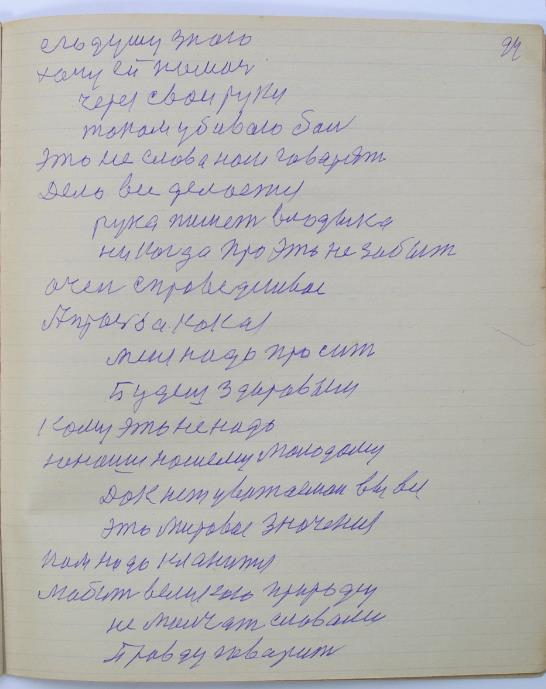 94
ею душу знаю
хочу ей помоч
через свои руки
током убиваю бол
это не слова нам говарят
Дело все делается
рука пишет владыка
никогда про это не забыт
очен справедливое
Прозба какая
меня надо просит
Будеш здаровым
Кому это не надо
нашему молодому
Док нет уважаемаи вы все
это мировое значения
нам надо кланится
Мабыт великаю природу
не молчат словами
Правду говарит